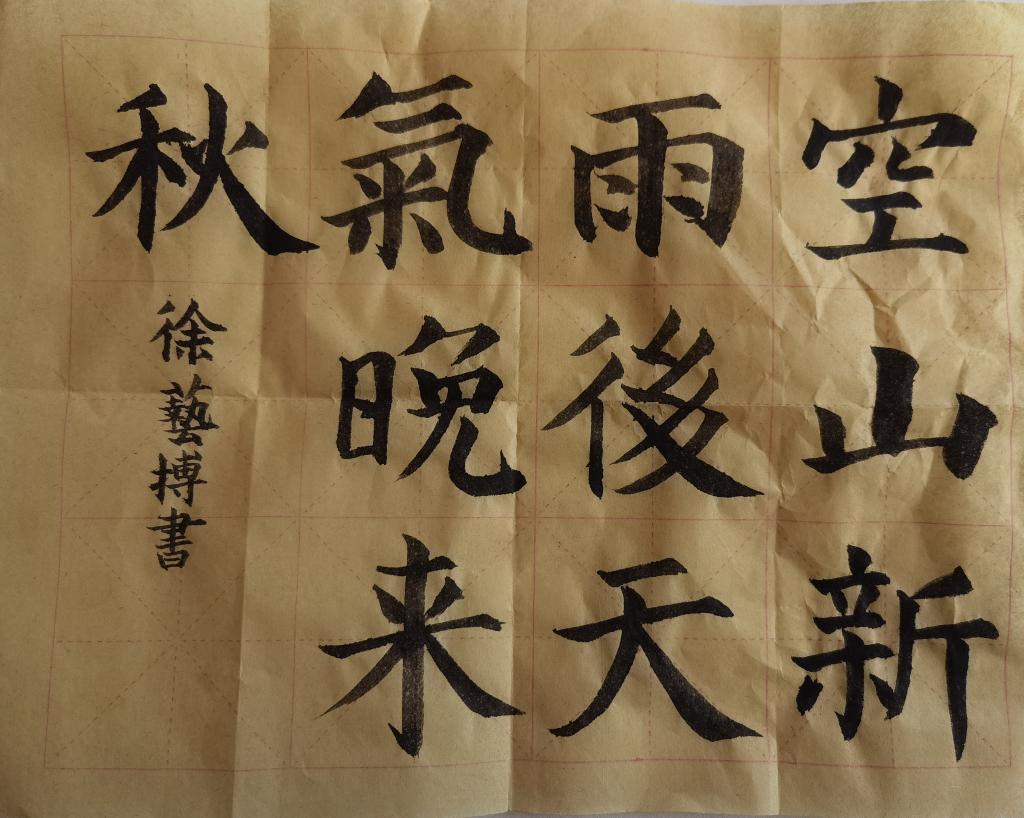 空山新
雨後天
氣晚来
秋
徐藝搏書